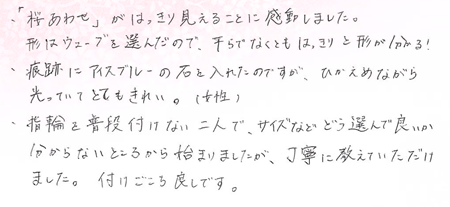 ・「桜あわせ」がはっきり見えることに感動しました。
形はウェーブを選んだので、平らでなくともはっきりと形が分かる!
・痕跡にアイスブルーの石を入れたのですが、ひかえめながら
光っていてとてもきれい。(女性)
・指輪を普段付けない二人で、サイズなどどう選んで良いか
分からないところから始まりましたが、丁寧に教えていただけ
ました。付けごこち良しです。